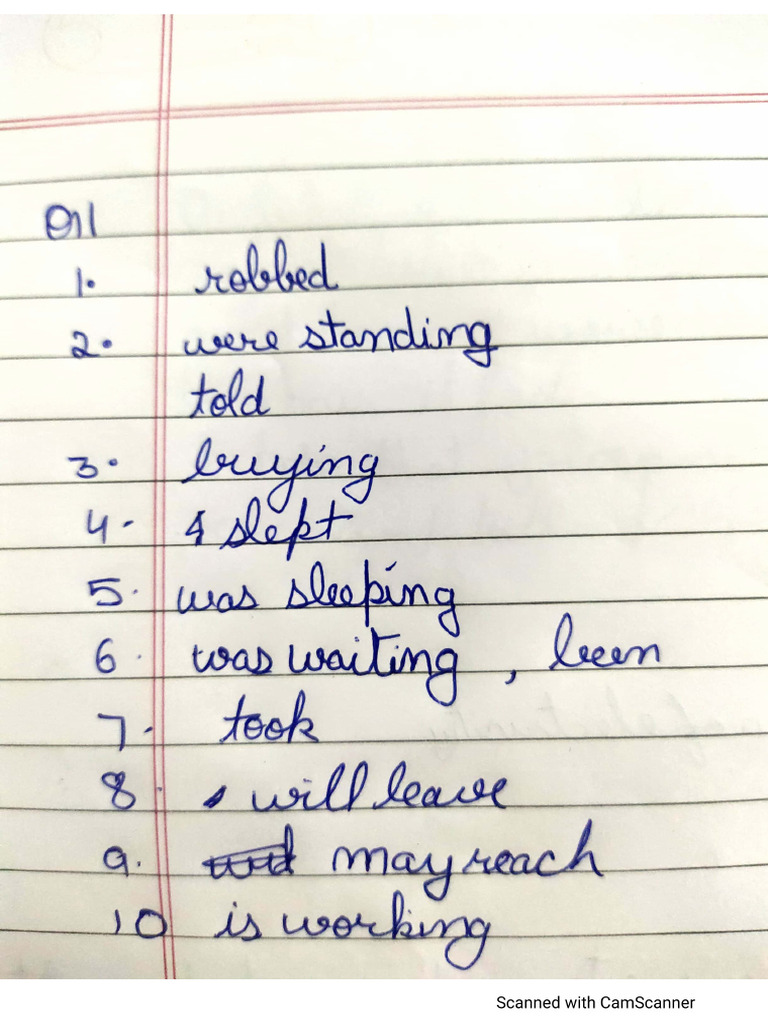 Q1
1. robbed
2. were standing
told
3. buying
4. slept
5. was sleeping
6. was waiting, been
7. took
8. will leave
9. may reach
10 is working
Scanned with CamScanner